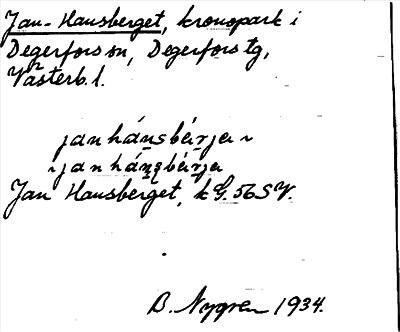 Jan-Hansberget, kronopark i
Degerfors sn, Degerfors tg,
Västerb. l.
jan hánsbärjə ~
~ jan hánsbärja
Jan Hansberget, k G. 56 SV.
B. Nygren 1934.